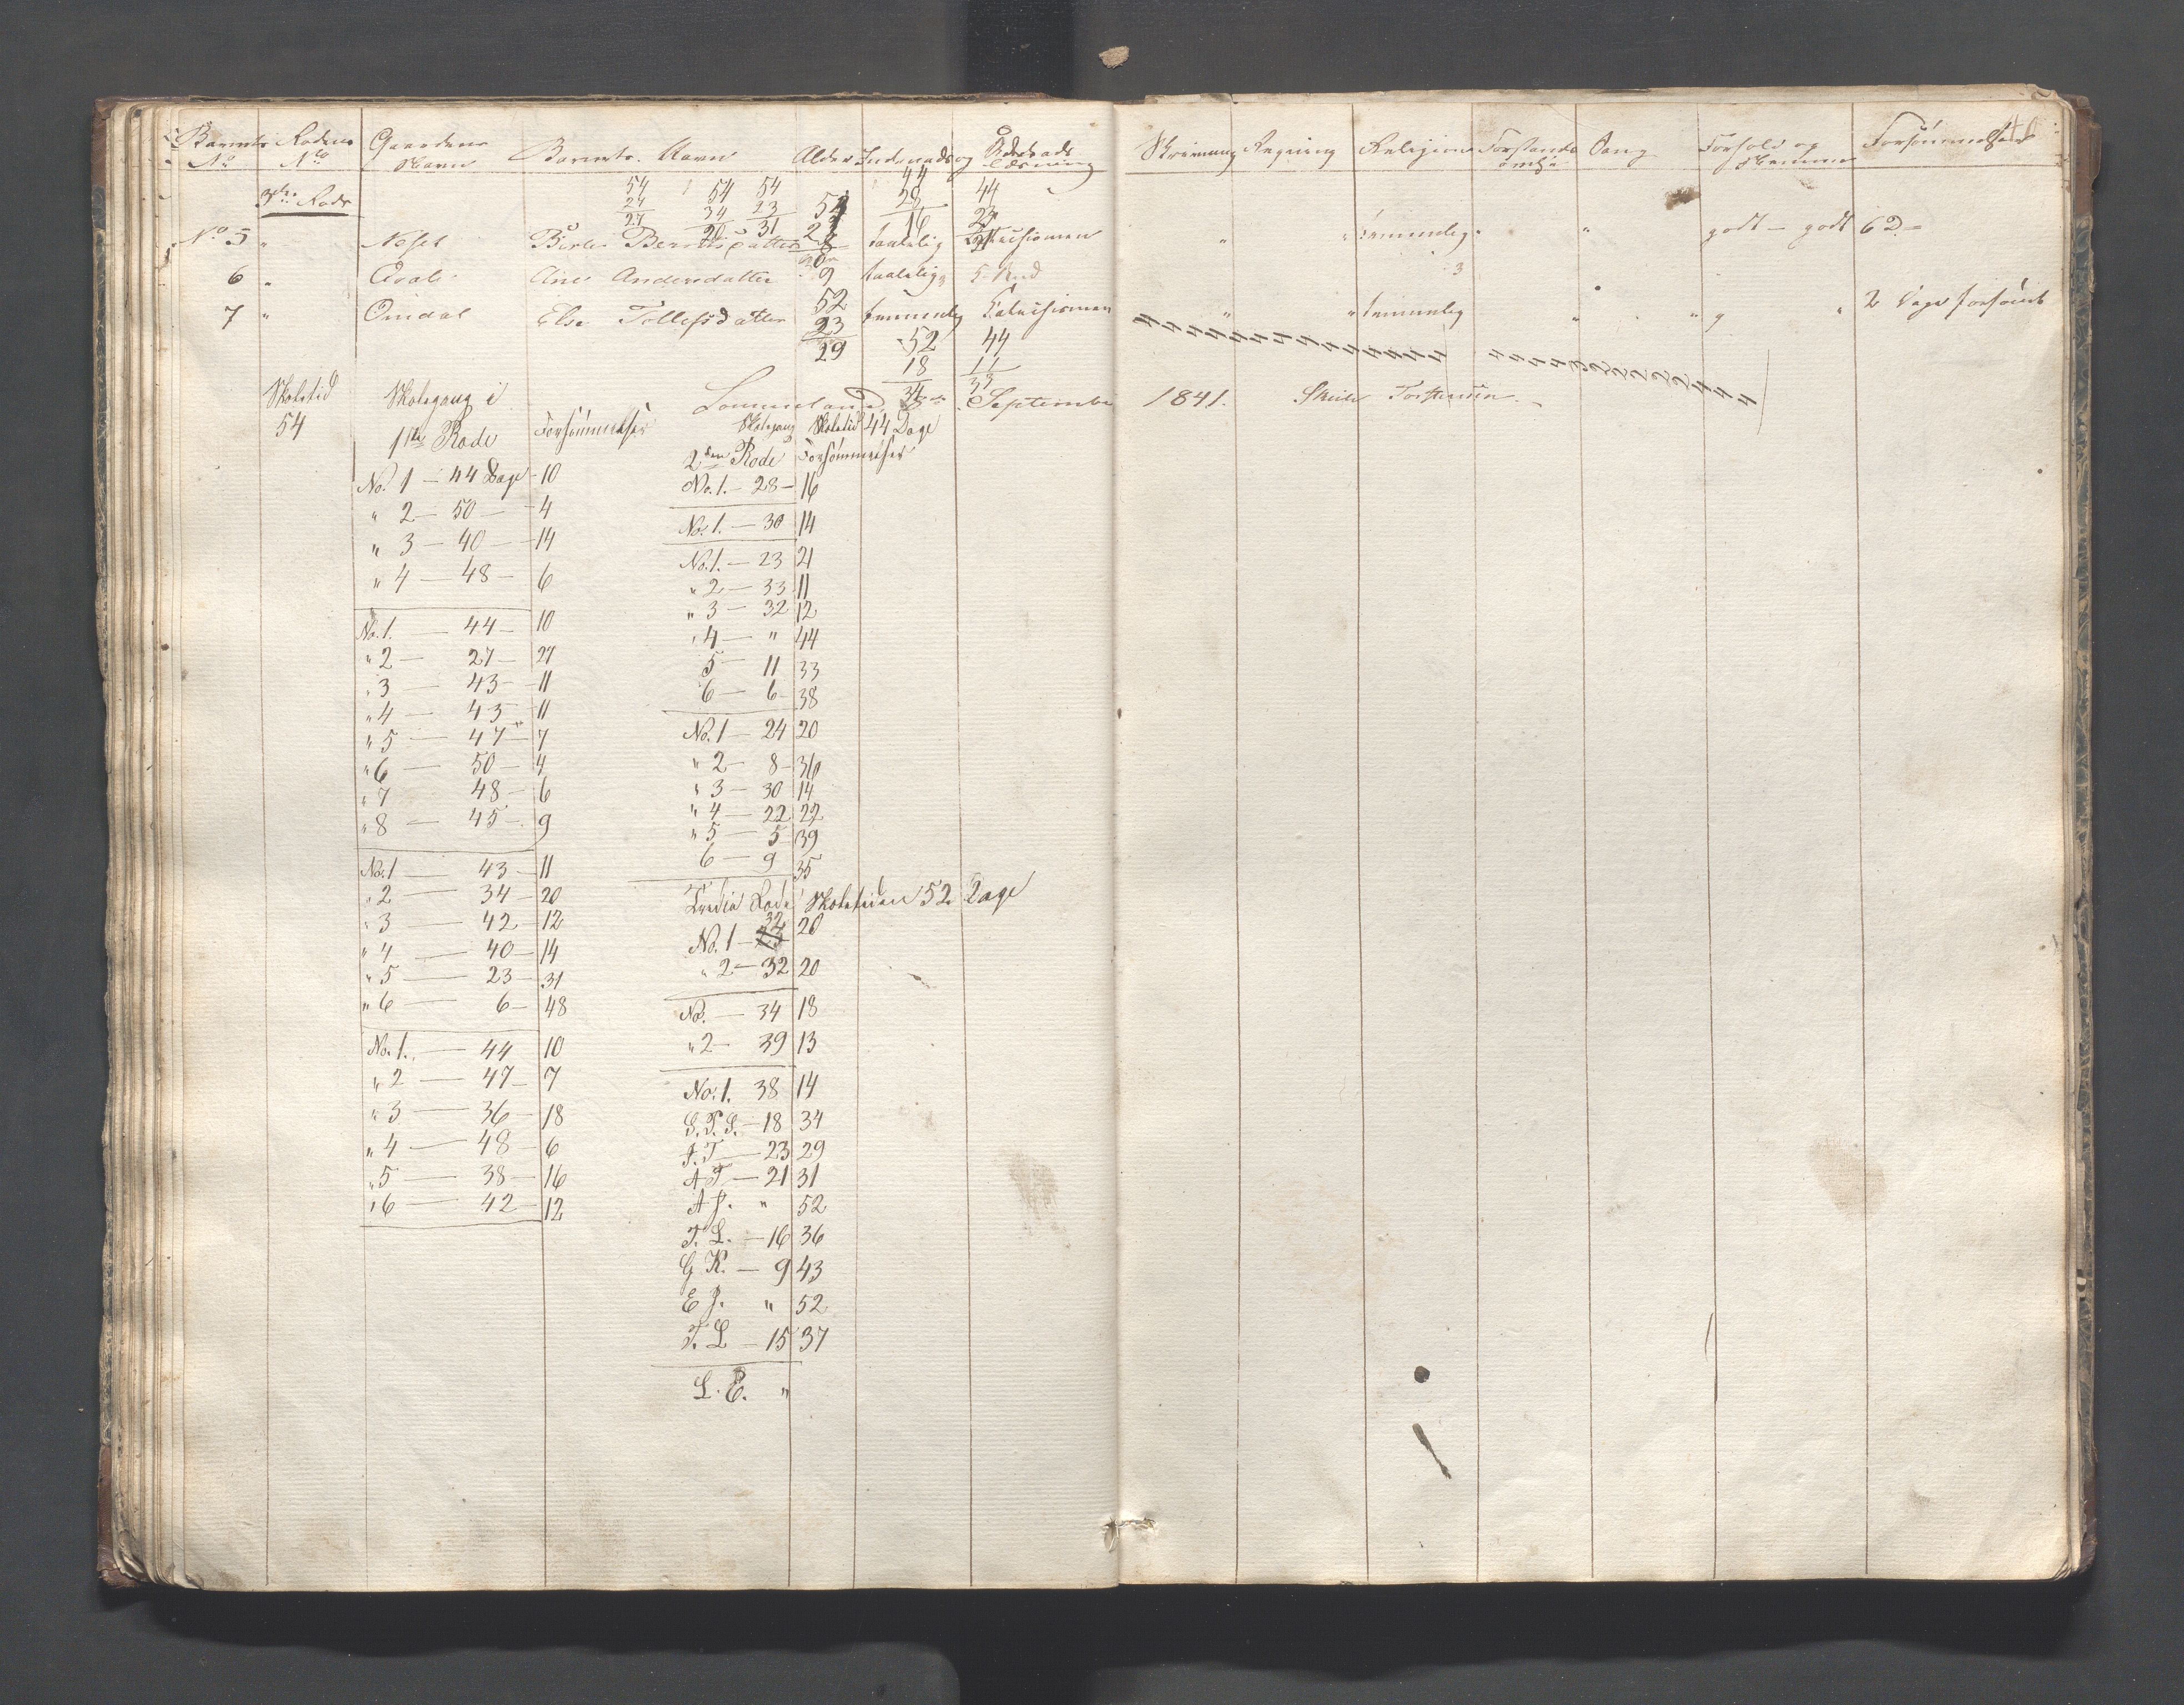 Barnets No Rodens No Gaardens Navn Barnets Navn Alder Indenads og Udenads Læsning Skrivning Regning Religion Forstands Sang Forhold og Forsømmelser
3die Rode
54 54 54 44 44
24 34 23 28 23
27 20 31 16 21
No 5 " Neset Berte Berntsdatter 8 taalelig Katechismen " " temmelig " godt - godt 6 D.
6 " Qvale Ane Andersdatter 9 taalelig
7 " Omdal Else Tollefsdatter temmelig Katechismen " " temmelig " " " 2 Dage forsømt
52 52 44
23 18 11
29 34 33
Skoletid Skolegang i
54 1ste Rode Forsømmelser
Lammeland September 1841. Torstensen.
Skolegang Skoletid 44 Dage
2den Rode Forsømmelser
No. 1 - 44 Dage - 10
" 2 - 50 - 4
" 3 - 40 - 14
" 4 - 48 - 6
No. 1. - 44 - 10
" 2 - 27 - 27
" 3 - 43 - 11
" 4 - 43 - 11
" 5 - 47 - 7
" 6 - 50 - 4
" 7 48 - 6
" 8 - 45 - 9
No. 1 43 - 11
" 2 - 34 - 20
" 3 - 42 - 12
" 4 - 40 - 14
" 5 - 23 - 31
" 6 - 6 - 48
No. 1. - 44 10
" 2 - 47 - 7
" 3 - 36 - 18
" 4 - 48 - 6
" 5 - 38 - 16
" 6 - 42 - 12
No. 1. - 28 - 16
No. 1. - 30 14
No. 1. - 23 21
" 2 - 33 11
" 3 - 32 12
" 4 - " 44
5 - 11 33
6 - 6 - 38
No. 1 - 24 20
" 2 - 8 - 36
" 3 - 30 14
" 4 - 22 22
" 5 - 5 39
6 - 9 35
Tredie Rode Skoletiden 52 Dage
No. 1 - 32 20
" 2 - 32 20
No. - 34 18
" 2 - 39 13
No. 1. 38 14
S. T. S. - 18 34
A. T - 23 29
A T - 21 31
A J. " 52
T. L. - 16 36
G K. - 9 43
E J. " 52
T. L - 15 37
L. E. "